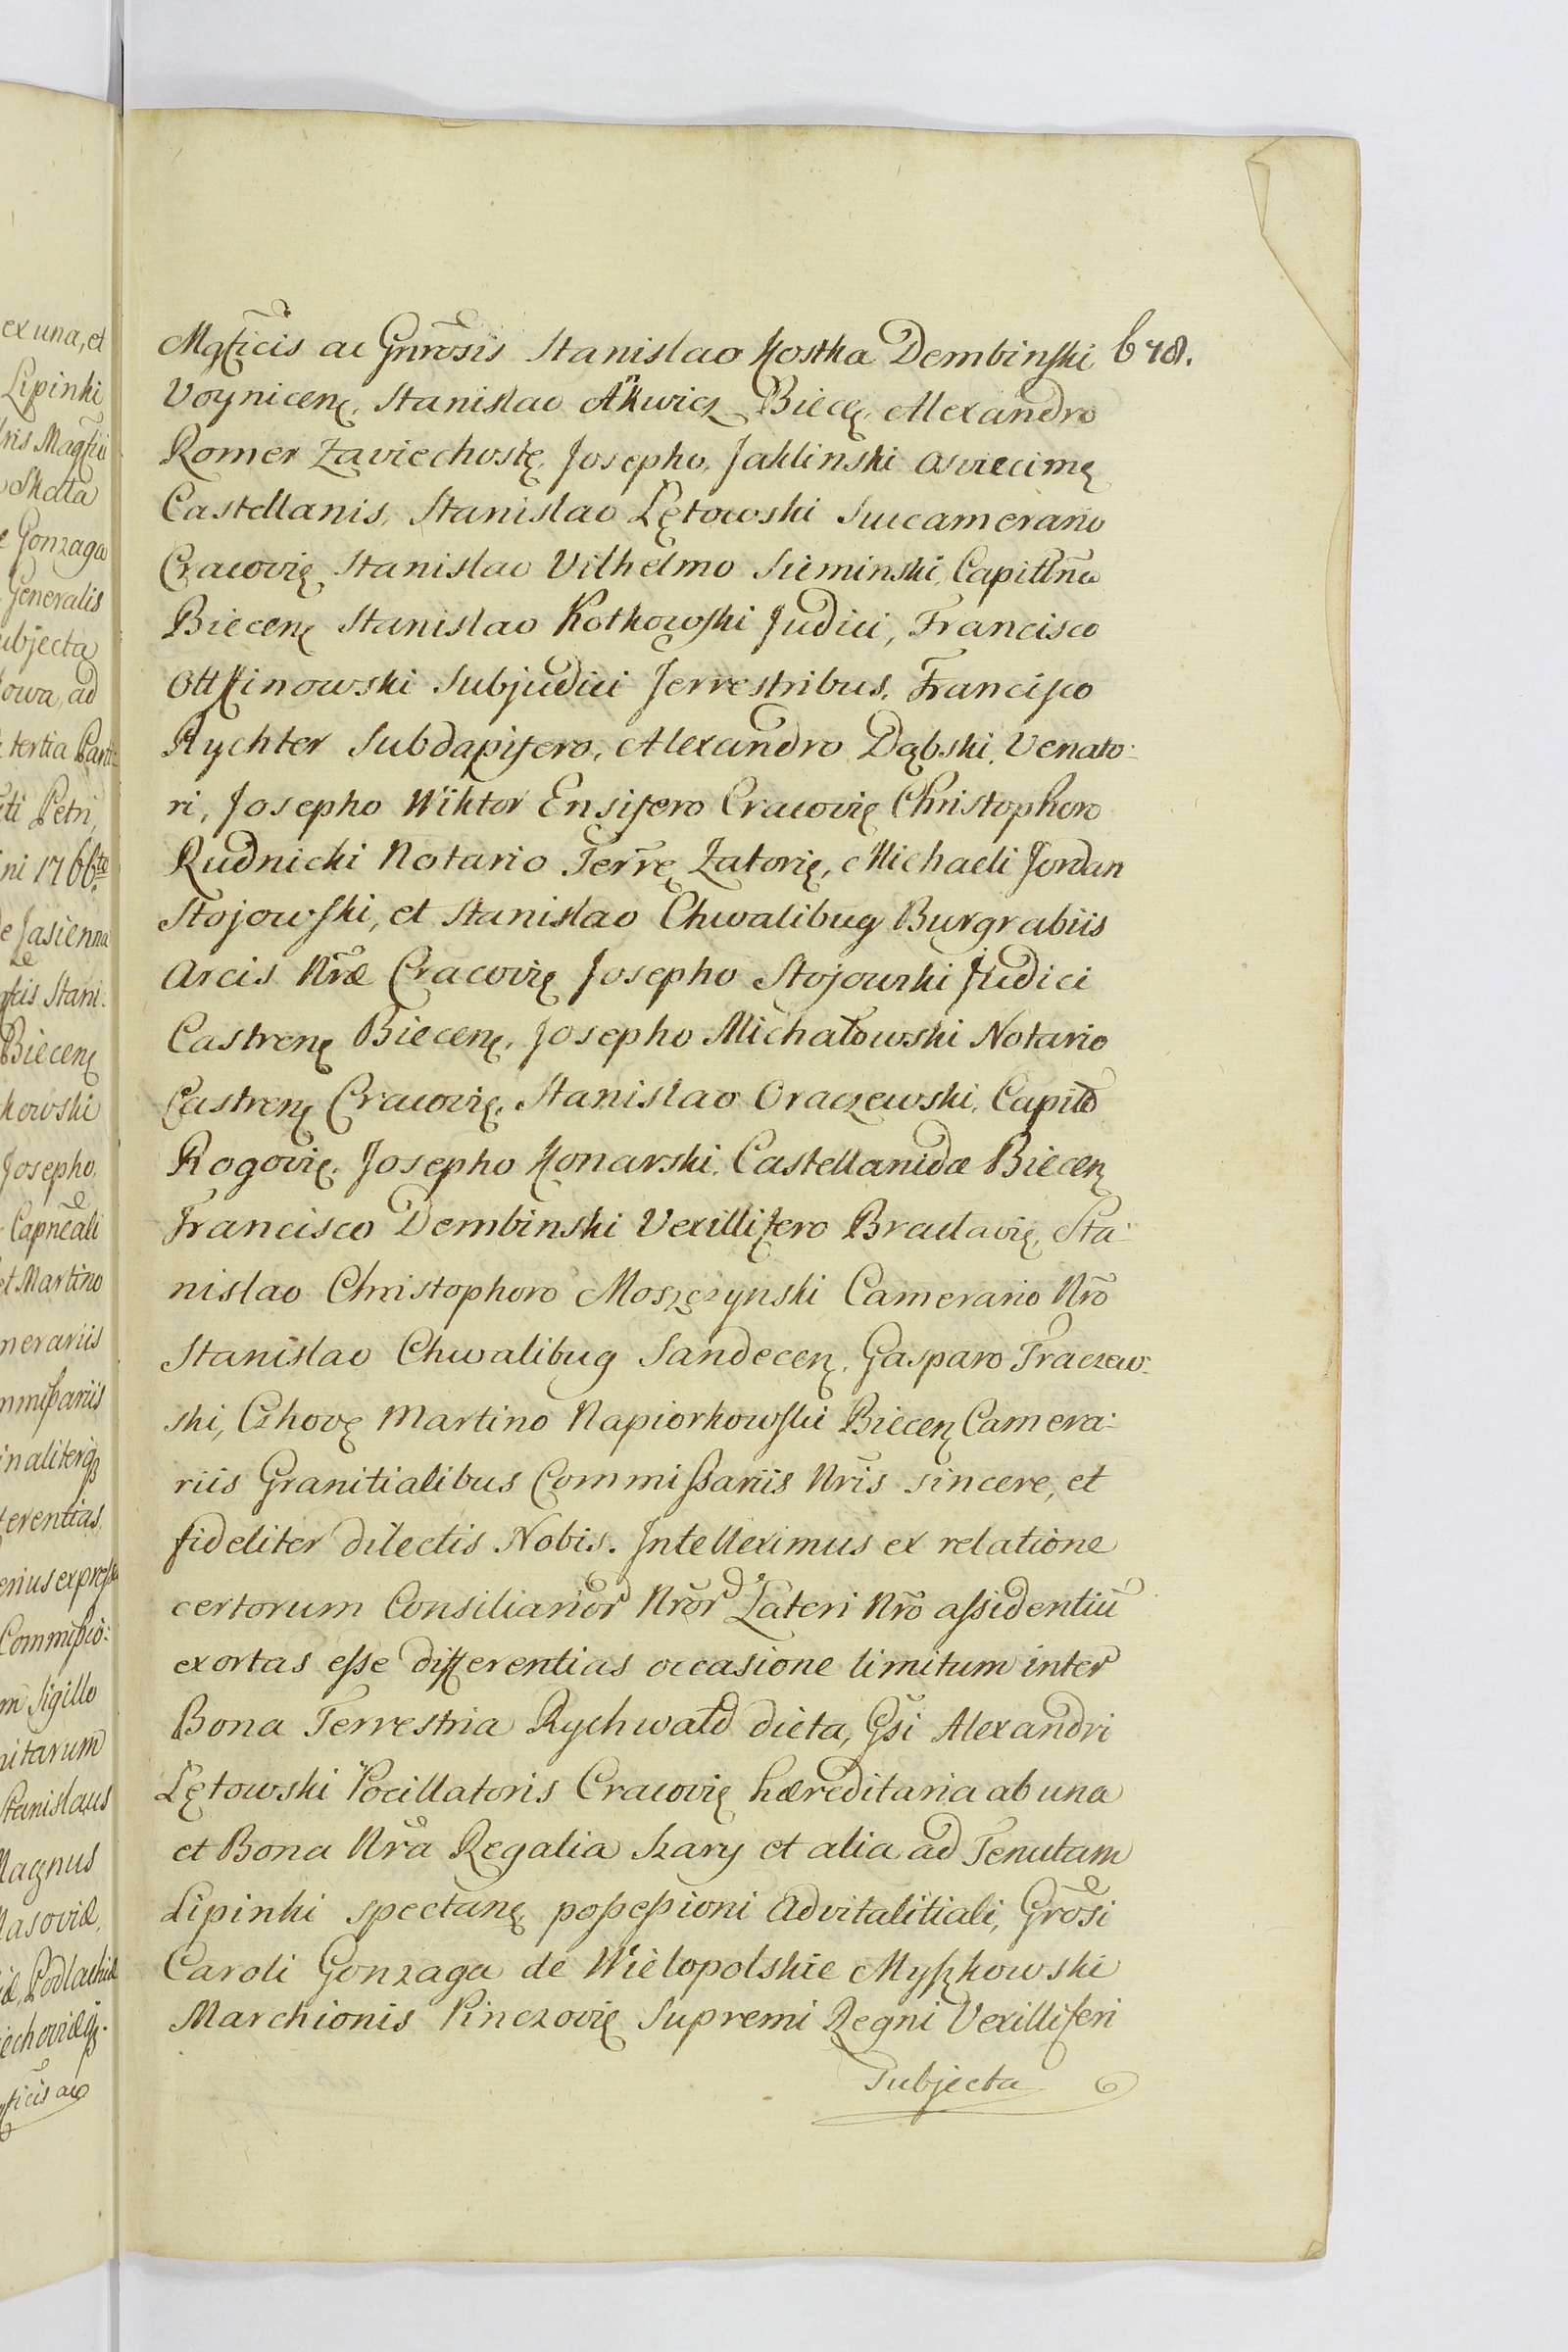 ex una, et
Lipinki
Skota
e Gonzaga
Generalis
ubjecta
owa, ad
tertia Part:
ti Petri,
ni 1766to
e Jasienna
Stani:
Biecenę
kowski
Josepho,
Capnēali
et Martino
merariis
mmißariis
inaliterqz
ferentias
erius expresse
Commißio:
m Sigillo
nitarum
Stanislaus
Magnus
Masoviæ,
iæ, Podlachiæ
iechoviæqz.
ficis ac
Mgficis ac Gnrosis Stanislao Kostka Dembinski 678.
Voynicenę, Stanislao Ankwicz Biecę, Alexandro
Romer Zaviechostę, Josepho, Jaklinski Osviecimę
Castellanis, Stanislao Lętowski Succamerario
Cracovię Stanislao Vilhelmo Sieminski, Capitnō
Biecenę Stanislao Kotkowski Judici, Francisco
Ottfinowski Subjudici Terrestribus, Francisco
Rychter Subdapifero, Alexandro Dąbski, Venato:
ri, Josepho Wiktor Ensifero Cracovię Christophoro
Rudnicki Notario Terrę Zatorię, Michaeli Jordan
Stojowski, et Stanislao Chwalibug Burgrabiis
Arcis Nræ Cracovię Josepho Stojowski Judici
Castrenę Biecenę, Josepho Michałowski Notario
Castrenę Cracovię, Stanislao Oraczewski, Capito
Rogovię, Josepho Konarski, Castellanidæ Biecenę
Francisco Dembinski Vexillifero Braclavię, Sta:
nislao Christophoro Moszczynski Camerario Nrō
Stanislao Chwalibug Sandecenę, Gasparo Traczew:
ski, Czhovę Martino Napiorkowski Biecenę Camera:
riis Granitialibus Commißariis Nris sincere, et
fideliter dilectis Nobis. Intelleximus ex relatione
certorum Consiliarior Nror Lateri Nrō assidentiū
exortas esse differentias occasione limitum inter
Bona Terrestria Rychwałd dicta, Gsi Alexandri
Lętowski Pocillatoris Cracovię hæreditaria ab una
et Bona Nra Regalia Szary et alia ad Tenutam
Lipinki spectanę, poßeßioni advitalitiali, Grosi
Caroli Gonzaga de Wielopolskie Myszkowski
Marchionis Pinczovię Supremi Regni Vexilliferi
Subjecta